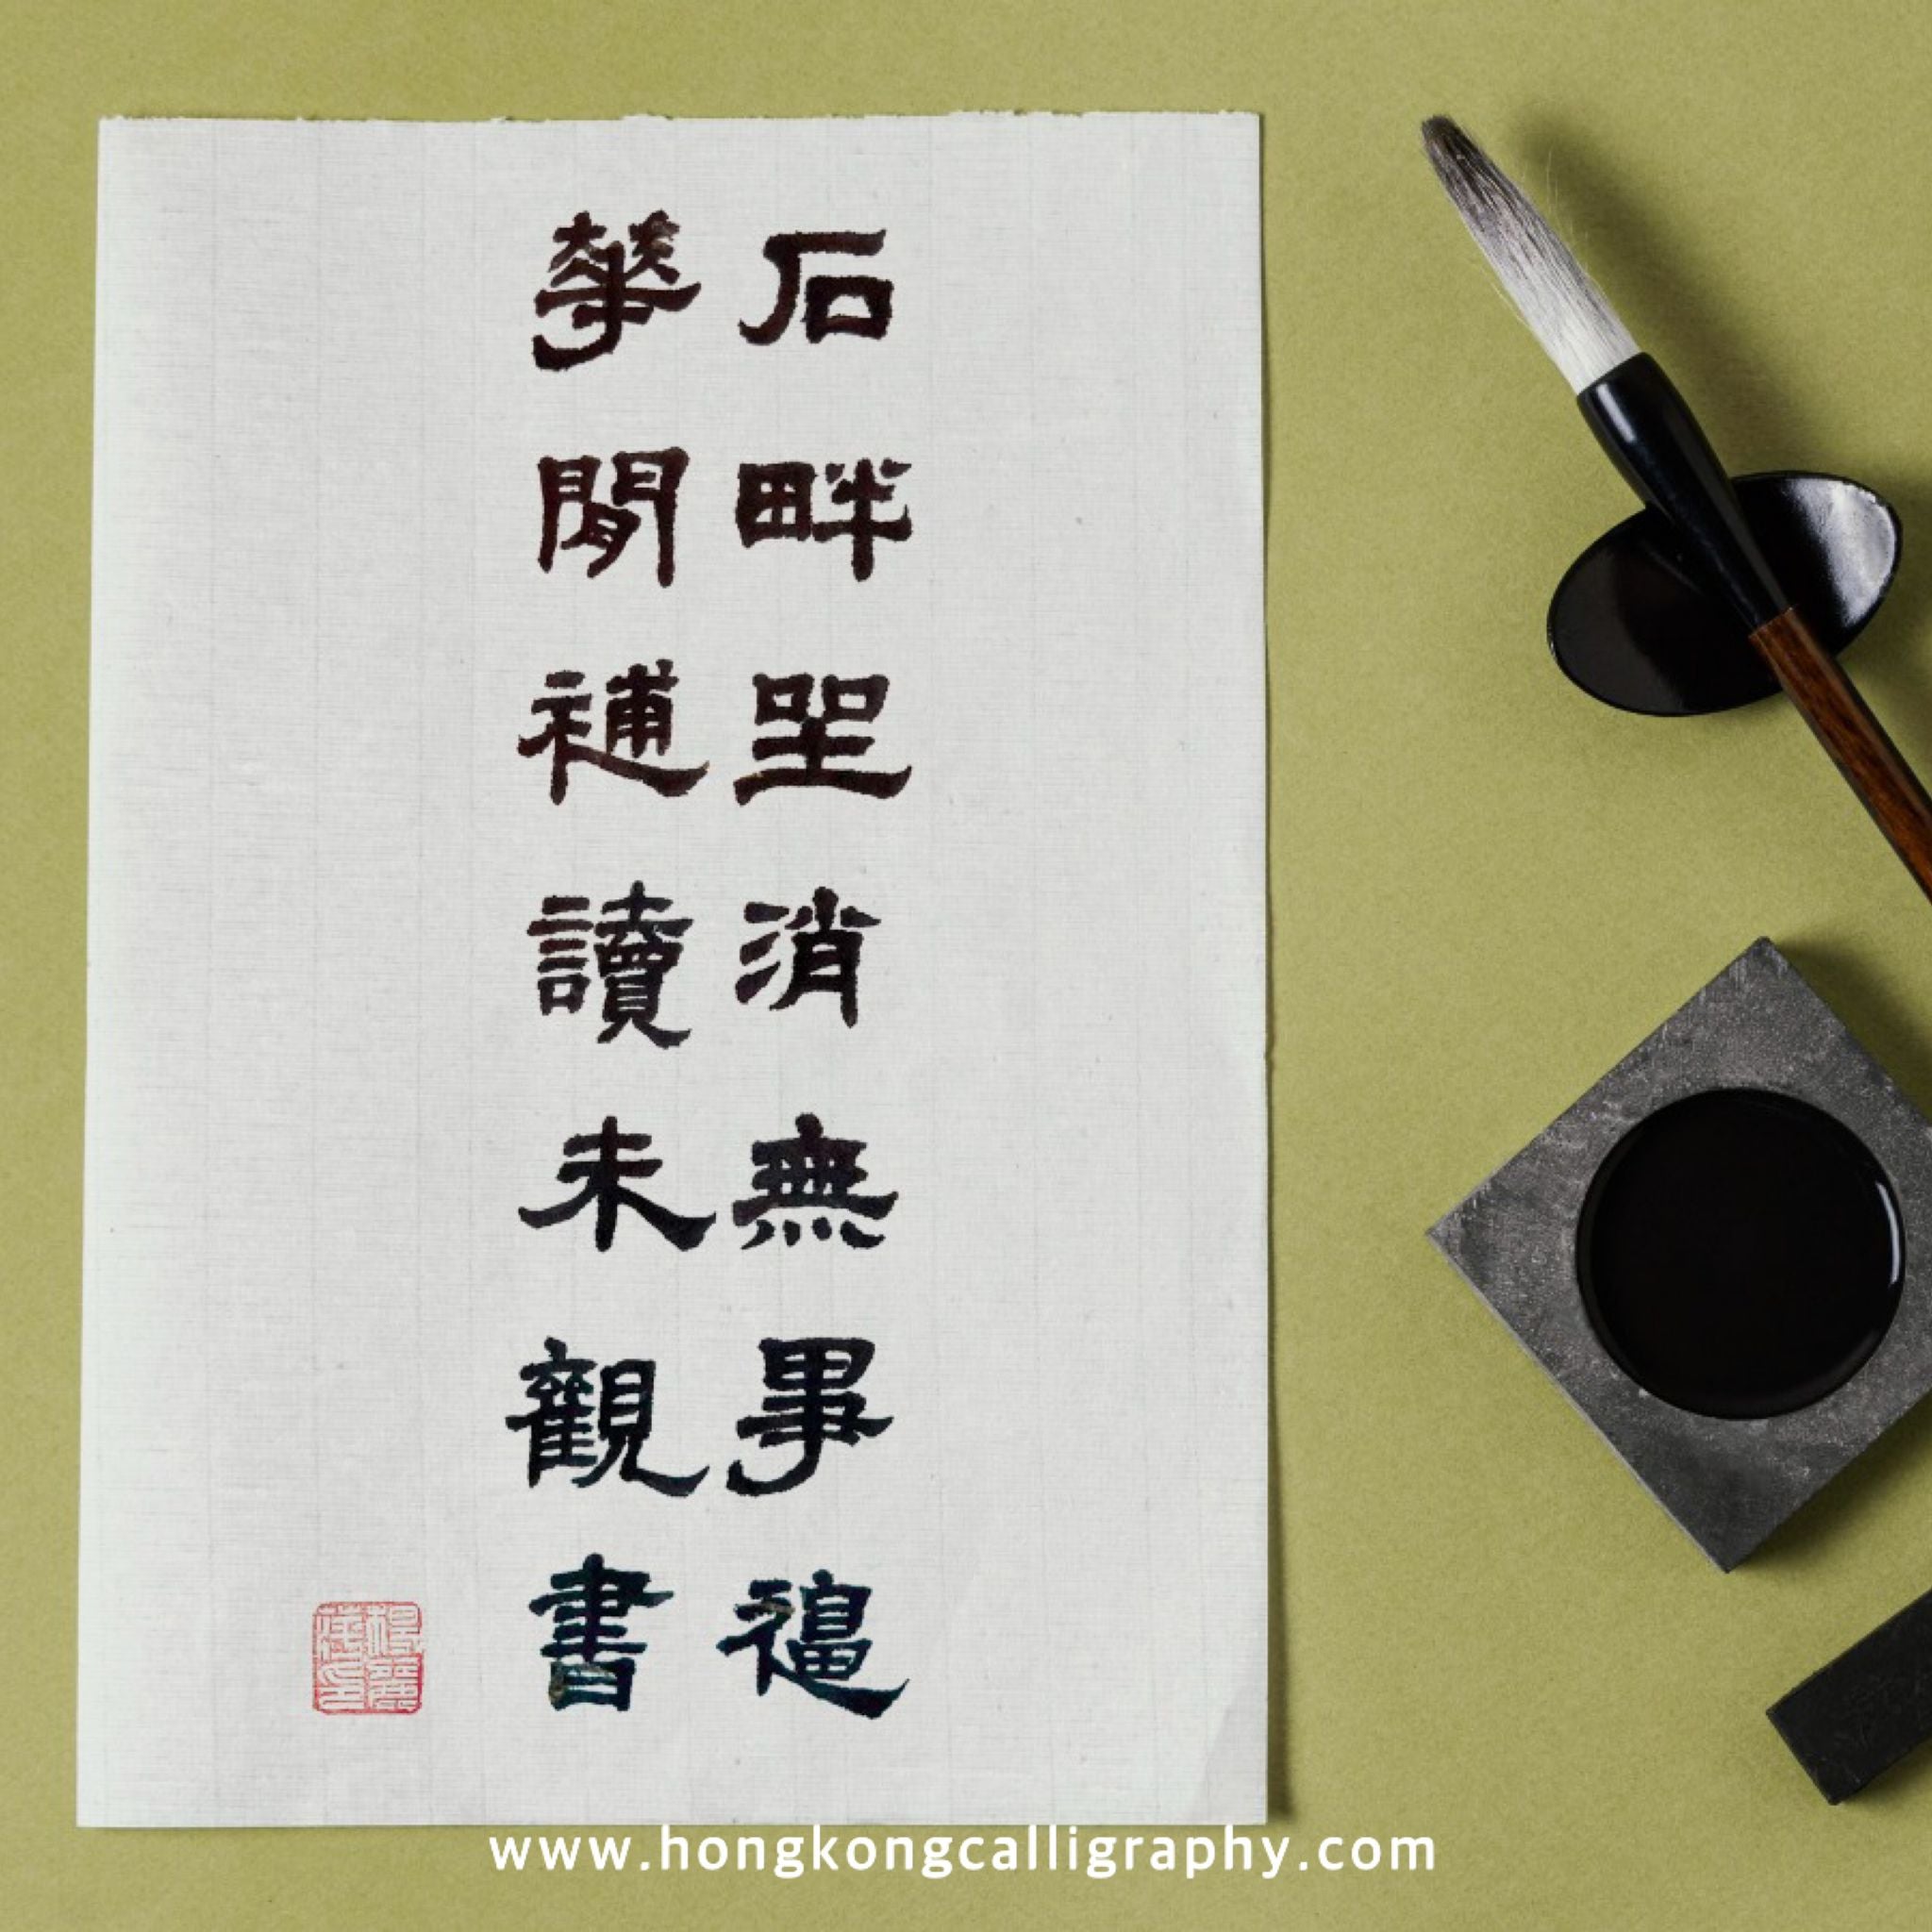 石畔坐消無事福
華間補讀未觀書
www.hongkongcalligraphy.com